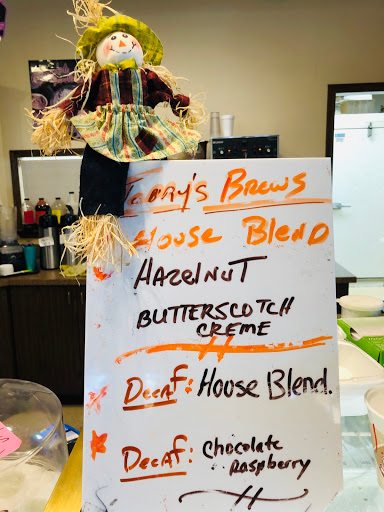 Today's Brews
House Blend
Hazelnut
Butterscotch
Creme
Decaf: House Blend.
Decaf: Chocolate
Raspberry